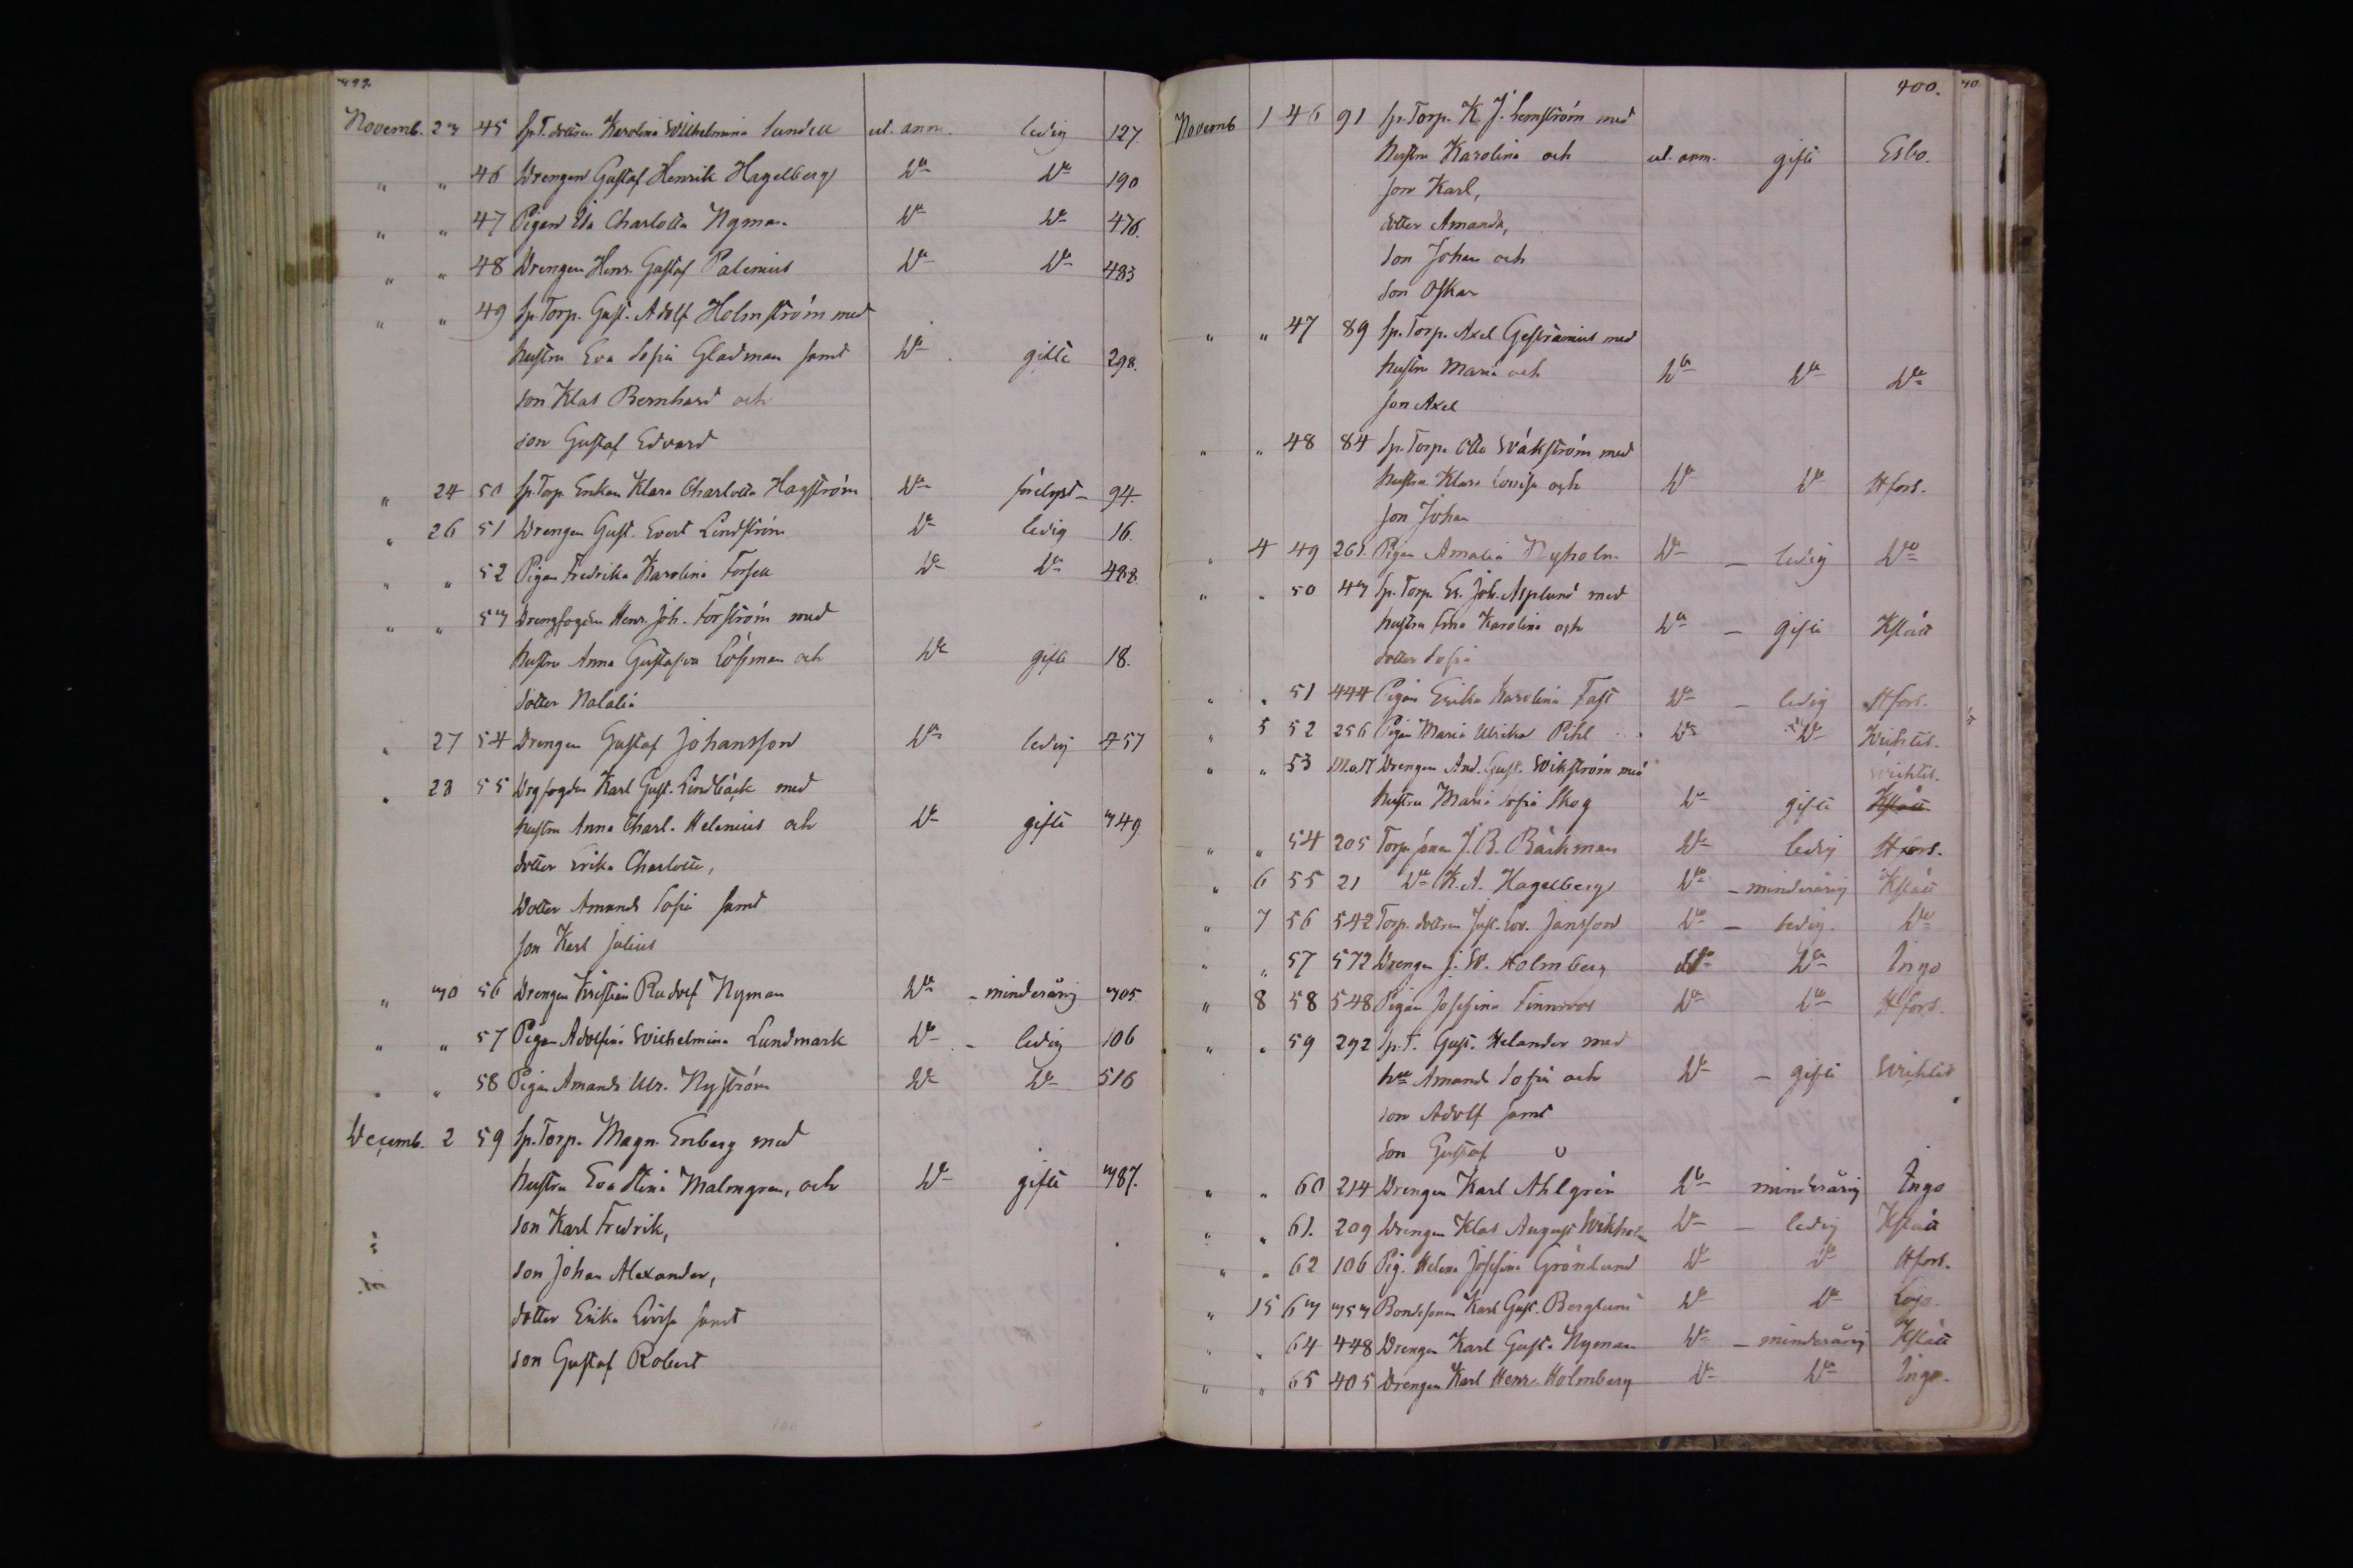 399.
Novemb. 23 45 Sp.T.dottren Karolina Willhelmina Sundell ut. anm. ledig 127.
" " 46 Drengen Gustaf Henrik Hagelberg Do Do 190
" " 47 Pigan Eva Charlotta Nyman Do Do 476.
" " 48 Drengen Henr. Gustaf Palenius Do Do 483
" " 49 Sp.Torp. Gust. Adolf Holmström med
hustru Eva Sofia Gladman samt Do gifte 298.
son Klas Bernhard och
son Gustaf Edvard
" 24 50 Sp.Torp. Enkan Klara Charlotta Hagström Do 94.
" 26 51 Drengen Gust. Evert Lindström Do ledig 16.
" " 52 Pigan Fredrika Karolina Forsell Do Do 488.
" " 53 Drengfogden Henr. Joh. Forström med
hustru Anna Gustafva Löfman och Do gifte 18.
dotter Natalia
" 27 54 Drengen Gustaf Johansson Do ledig 457
" 28 55 Drgfogden Karl Gust. Lindbäck med
hustru Anna Charl. Helenius och Do gifte 349
dotter Erika Charlotta,
dotter Amanda Sofia samt
son Karl Julius
" 30 56 Drengen Kristian Rudolf Nyman Do - minderårig 305.
" " 57 Pigan Adolfina Wilhelmina Lundmark Do - ledig 106
" " 58 Pigan Amanda Ulr. Nyström Do Do 516
Decemb. 2 59 Sp.Torp. Magn. Enberg med
hustru Eva Stina Malmgren, och Do gifte 387.
son Karl Fredrik,
son Johan Alexander,
dotter Erika Lovisa samt
son Gustaf Robert
400.
Novemb 1 46 91 Sp.Torp. K. J. Lemström med
hustru Karolina och ut. anm. gifte Esbo
son Karl,
dotter Amanda,
son Johan och
son Oskar
" " 47 89 Sp.Torp. Axel Gestranius med
hustru Maria och Do Do Do
son Axel
" " 48 84 Sp.Torp. Otto Wäkström med
hustru Klara Lovisa och Do Do Hfors.
son Johan
" 4 49 261. Pigan Amalia Nyholm Do - ledig Do
" " 50 43 Sp.Torp. Er. Joh. Asplund med
hustru Karolina och Do - gifte Kslätt
dotter Sofia
" " 51 444 Pigan Erika Karolina Fast Do - ledig Hfors.
" 5 52 256 Pigan Maria Ulrika Pihl Do Do Wichtis.
" " 53 Drengen And. Gust. Wikström med Wichtis.
hustru Maria Sofia Skog Do gifte Kslätt
" " 54 205 Torp.sonen J. B. Bäckman Do ledig Hfors.
" 6 55 21 Do K. A. Hagelberg Do - minderårig Kslätt
" 7 56 542 Torp. dottren Just. Lov. Jansson Do - ledig. Do
" " 57 572 Drengen J. W. Holmberg Do Do Ingo
" 8 58 548 Pigan Josefina Finnroos Do Do Hfors.
" " 59 292 Sp.T. Gust. Helander med
hru Amanda Sofia och Do - gifte Wichtis
son Adolf samt
son Gustaf
" " 60 214 Drengen Karl Ahlgrén Do minderårig Ingo
" " 61. 209 Drengen Klas August Wikholm Do - ledig Kslätt
" " 62 106 Pig. Helena Josefina Grönlund Do Do Hfors.
" 15 63 353 Bondesonen Karl Gust. Berglund Do Do Lojo.
" " 64 448 Drengen Karl Gust. Nyman Do - minderårig Kslätt
" " 65 405 Drengen Karl Henr. Holmberg Do Do Ingo.